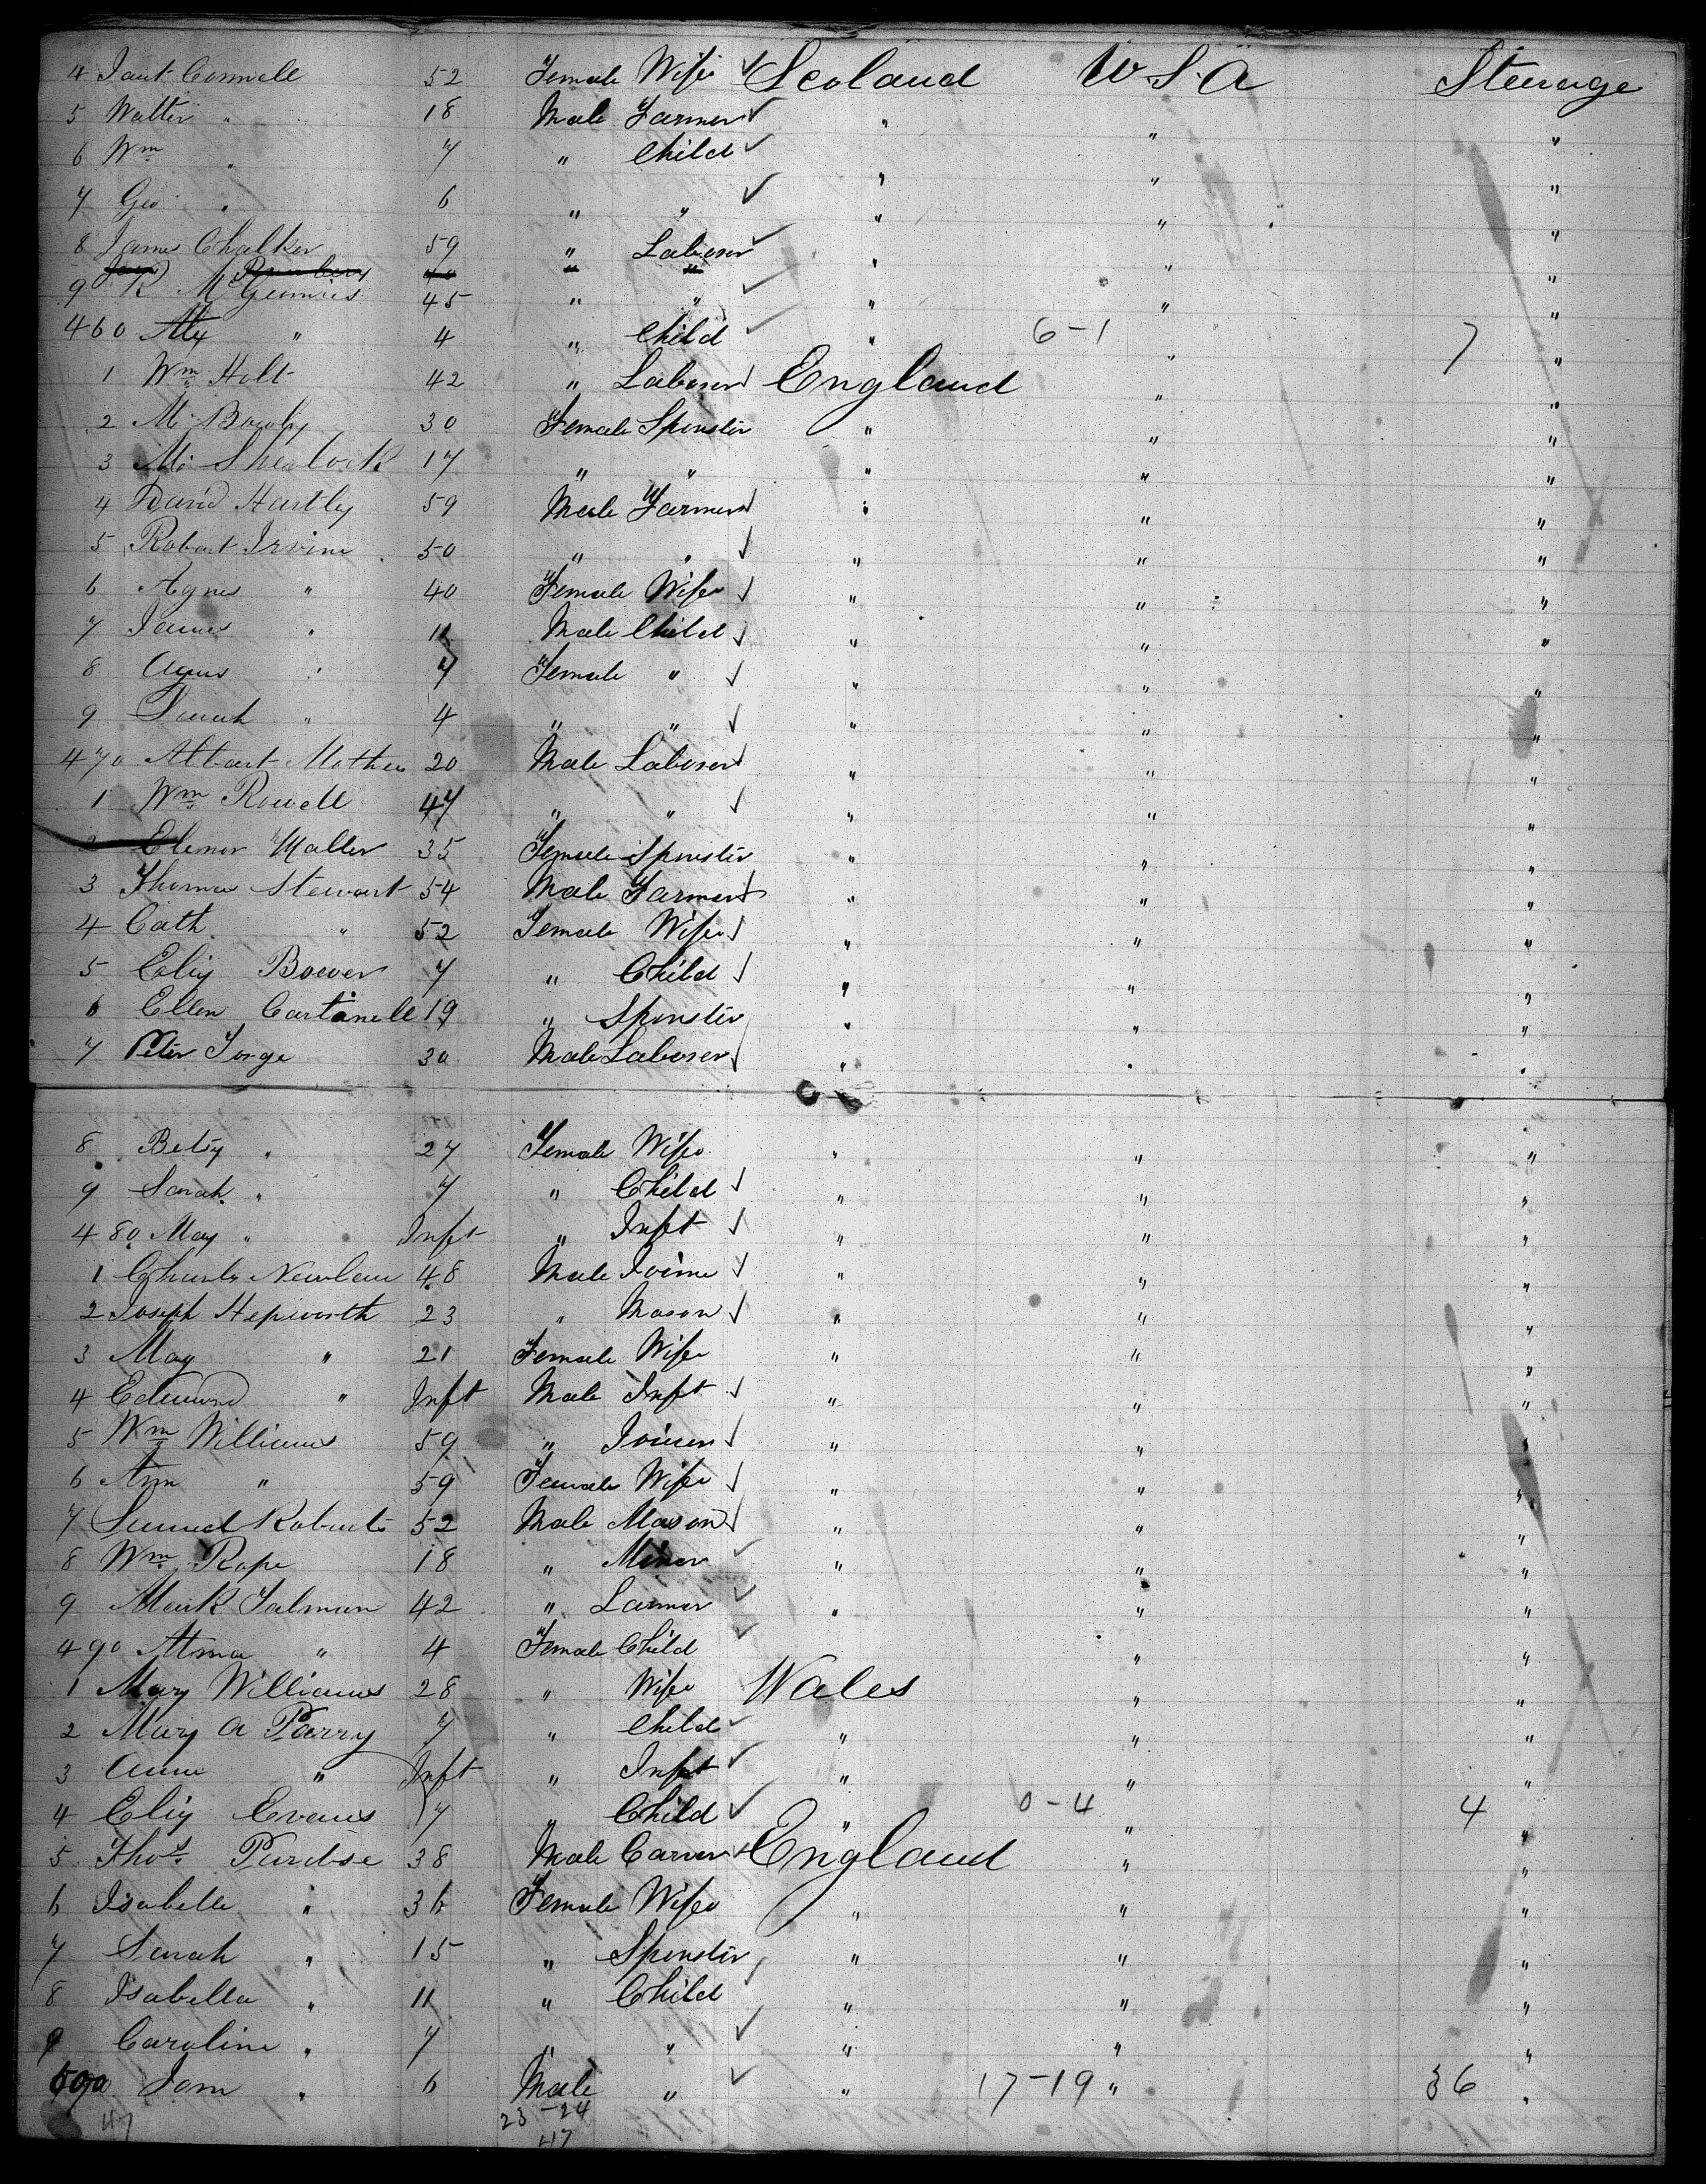 4 Jant Connell 52 Female Wife ✓ Scoland U.S.A Steerage
5 Walter " 18 Male Farmer ✓ " " "
6 Wm " 7 " Child ✓ " " "
7 Geo " 6 " " ✓ " " "
8 James Chalker 59 " Laborer ✓ " " "
9 R McGinnies 45 " " ✓ " " "
460 Alex " 4 " Child ✓ " 6-1 " 7 "
1 Wm Holt 42 " Laborer ✓ England " "
2 M Bowly 30 Female Spinster " " "
3 M Shealock 17 " " " " "
4 David Hartley 59 Male Farmer ✓ " " "
5 Robert Irvine 50 " " ✓ " " "
6 Agnes " 40 Female Wife ✓ " " "
7 James " 11 Male Child ✓ " " "
8 Agnes " 7 Female " ✓ " " "
9 Sarah " 4 " " ✓ " " "
470 Albert Mother 20 Male Laborer ✓ " " "
1 Wm Rowell 47 " " ✓ " " "
2 Elenor Maller 35 Female Spinster " " "
3 Thomas Stewart 54 Male Farmer ✓ " " "
4 Cath " 52 Female Wife ✓ " " "
5 Eliz Bower 7 " Child ✓ " " "
6 Ellen Cartmell 19 " Spinster " " "
7 Peter Forge 30 Male Laborer ✓ " " "
8 Betsy " 27 Female Wife " " "
9 Sarah " 7 " Child ✓ " " "
480 May " Inft " Inft ✓ " " "
1 Charls Newlan 48 Male Joine ✓ " " "
2 Joseph Hepworth 23 " Mason ✓ " " "
3 May " 21 Female Wife " " "
4 Edmund " Inft Male Inft ✓ " " "
5 Wm Williams 59 " Joiner ✓ " " "
6 Ann " 59 Female Wife ✓ " " "
7 Samuel Roberts 52 Male Mason ✓ " " "
8 Wm Rope 18 " Miner ✓ " " "
9 Mark Salmon 42 " Larmer ✓ " " "
490 Alma " 4 Female Child ✓ " "
1 Mary Williams 28 " Wife Wales " "
2 Mary A Parry 7 " Child ✓ " " "
3 Anne " Inft " Inft ✓ " " "
4 Eliz Evans 7 " Child ✓ " 0-4 " 4 "
5 Thos Purdise 38 Male Carver ✓ England " "
6 Isabelle " 36 Female Wife " " "
7 Sarah " 15 " Spinster ✓ " " "
8 Isabella " 11 " Child " " "
9 Caroline " 7 " " ✓ " " "
500 Tom " 6 Male " ✓ " 17-19 " 36 "
47 23-24
47